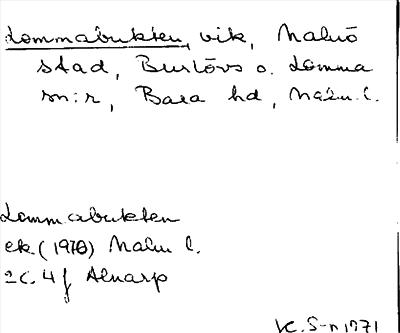 Lommabukten, vik, Malmö
stad, Burlövs o. Lomma
sn:r, Bara hd, Malm. l.
Lommabukten
ek. (1970) Malm l.
2C. 4 f Alnarp
1971